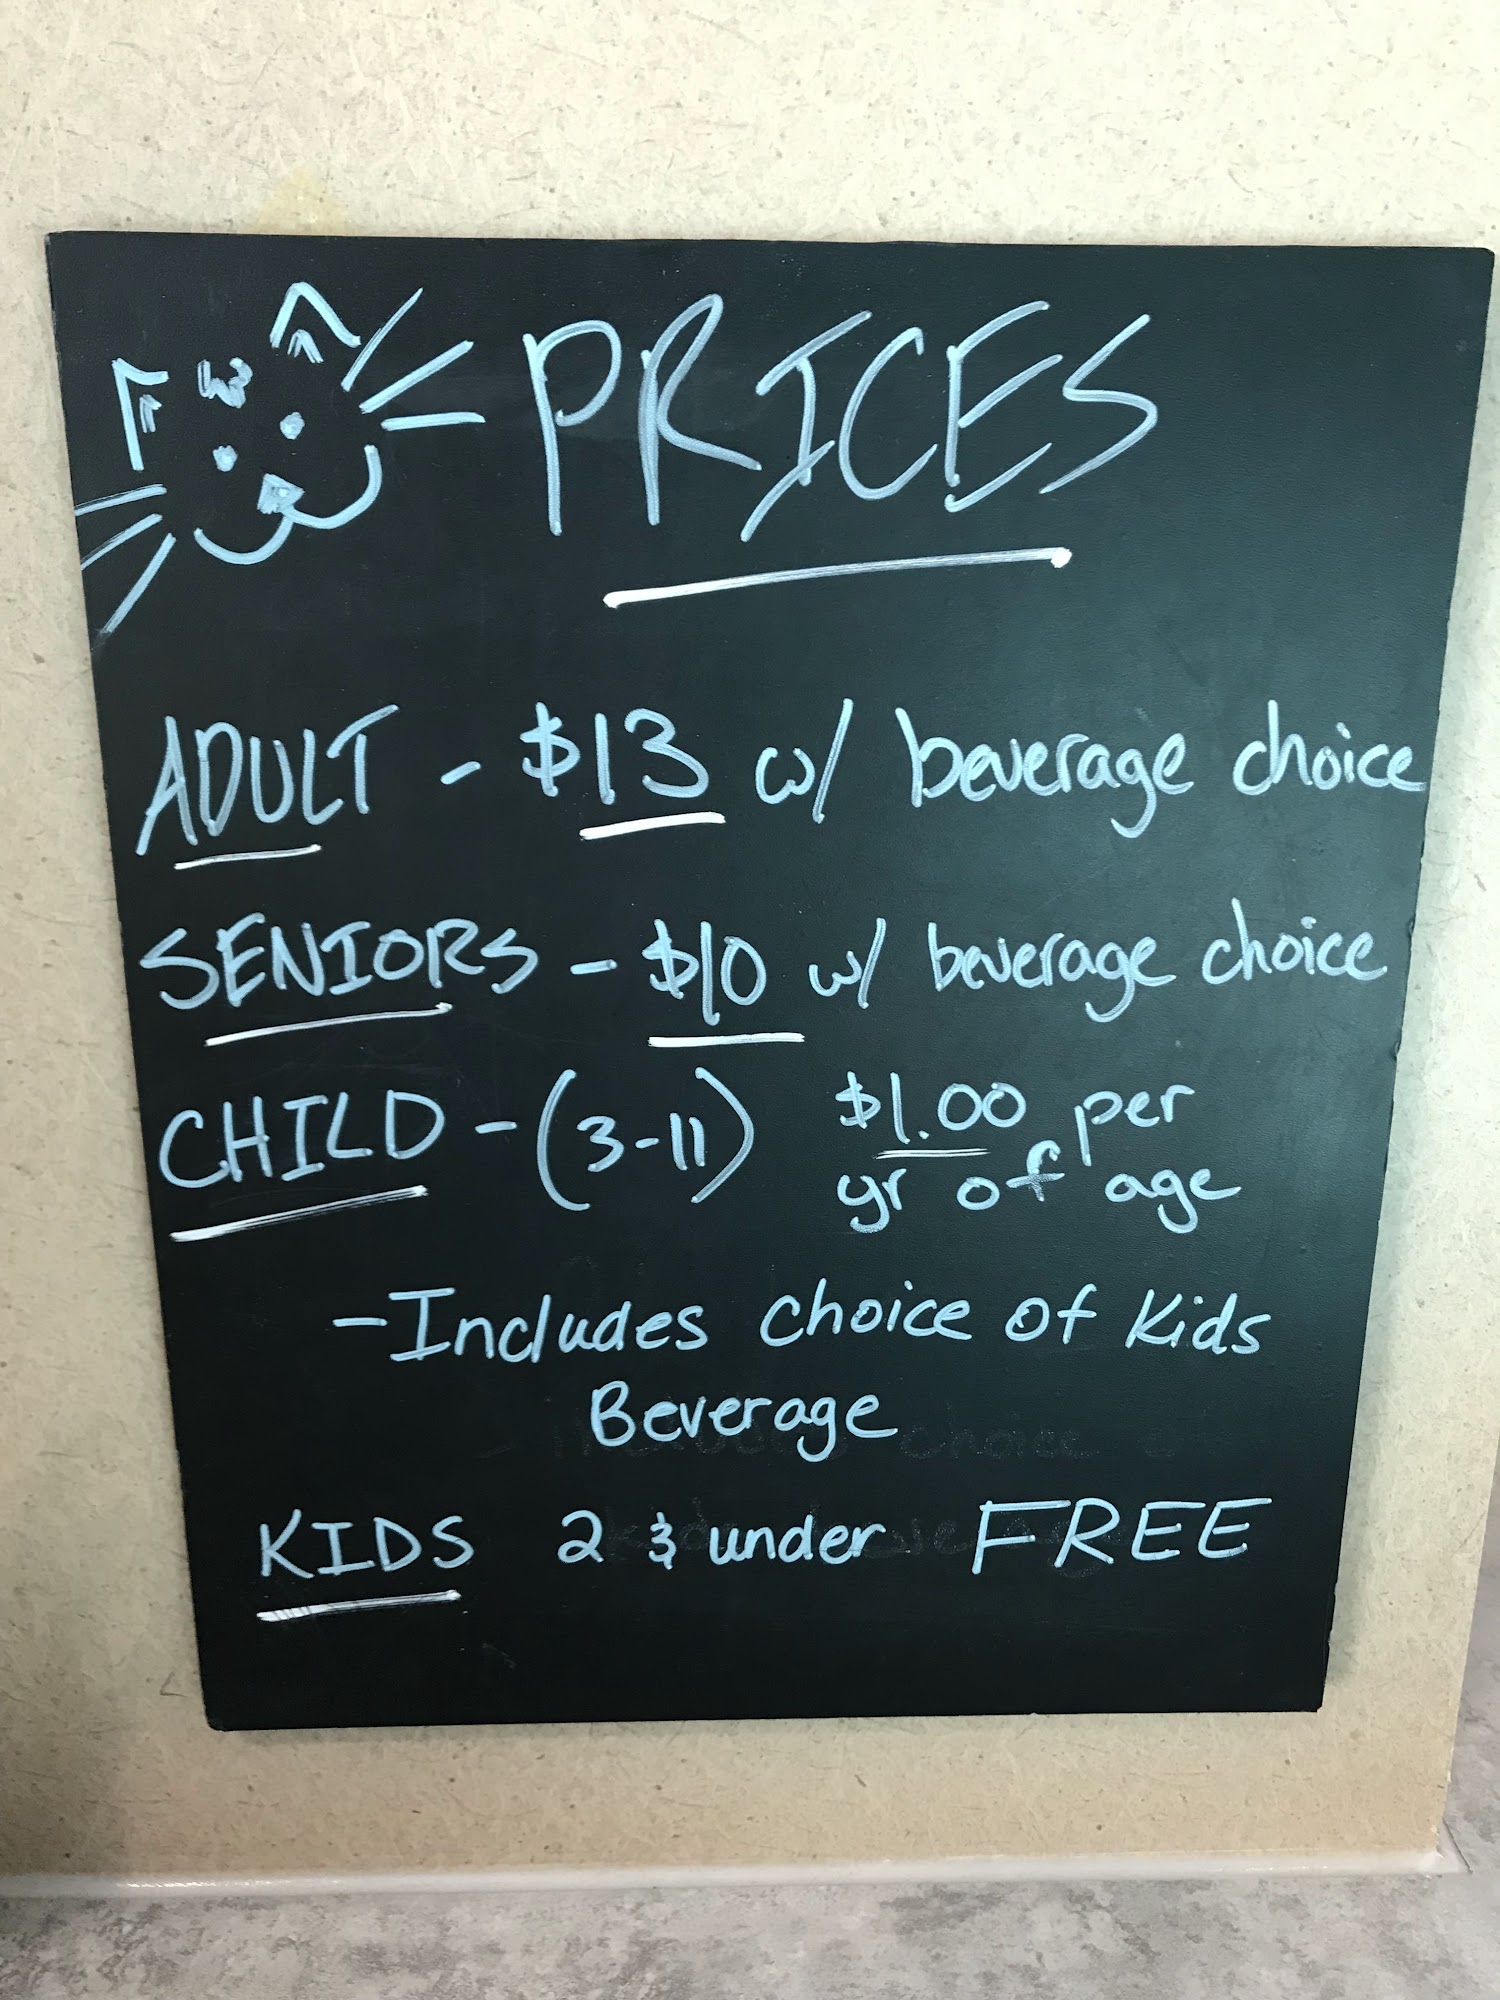 PRICES
ADULT - $13 w/ beverage choice
SENIORS - $10 w/ beverage choice
CHILD - (3-11) $1.00 per
yr of age
- Includes choice of Kids
Beverage
KIDS 2 & under FREE